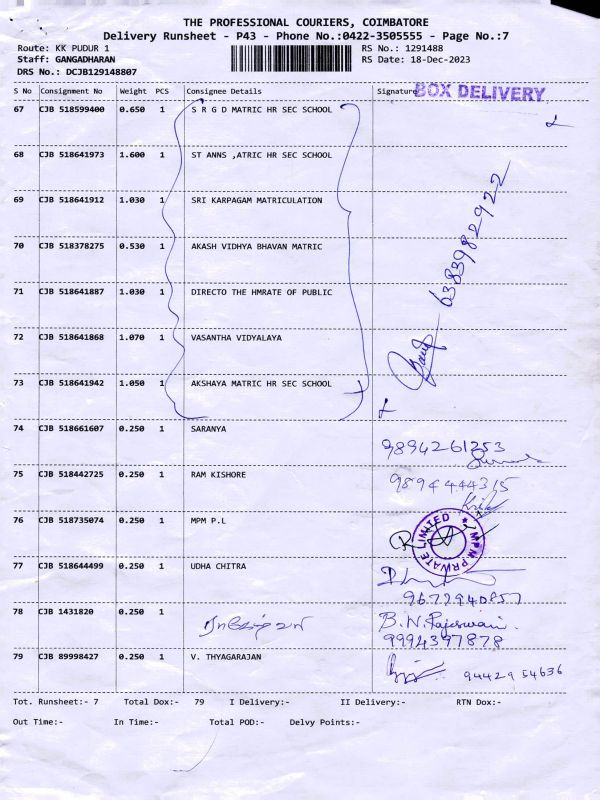 THE PROFESSIONAL COURIERS, COIMBATORE
Delivery Runsheet - P43 - Phone No.:0422-3505555 - Page No.:7
Route: KK PUDUR 1 RS No.: 1291488
Staff: GANGADHARAN RS Date: 18-Dec-2023
DRS No.: DCJB129148807
S No Consignment No Weight PCS Consignee Details Signature BOX DELIVERY
67 CJB 518599400 0.650 1 S R G D MATRIC HR SEC SCHOOL
68 CJB 518641973 1.600 1 ST ANNS ,ATRIC HR SEC SCHOOL
69 CJB 518641912 1.030 1 SRI KARPAGAM MATRICULATION
70 CJB 518378275 0.530 1 AKASH VIDHYA BHAVAN MATRIC
6383982922
71 CJB 518641887 1.030 1 DIRECTO THE HMRATE OF PUBLIC
72 CJB 518641868 1.070 1 VASANTHA VIDYALAYA
73 CJB 518641942 1.050 1 AKSHAYA MATRIC HR SEC SCHOOL
74 CJB 518661607 0.250 1 SARANYA
9894261253
75 CJB 518442725 0.250 1 RAM KISHORE
9894444315
76 CJB 518735074 0.250 1 MPM P.L
MPM PRIVATE LIMITED
77 CJB 518644499 0.250 1 UDHA CHITRA
9677940857
78 CJB 1431820 0.250 1 B.N. Rajeswari
9994397878
79 CJB 89998427 0.250 1 V. THYAGARAJAN 94429 54636
Tot. Runsheet:- 7 Total Dox:- 79 I Delivery:- II Delivery:- RTN Dox:-
Out Time:- In Time:- Total POD:- Delvy Points:-